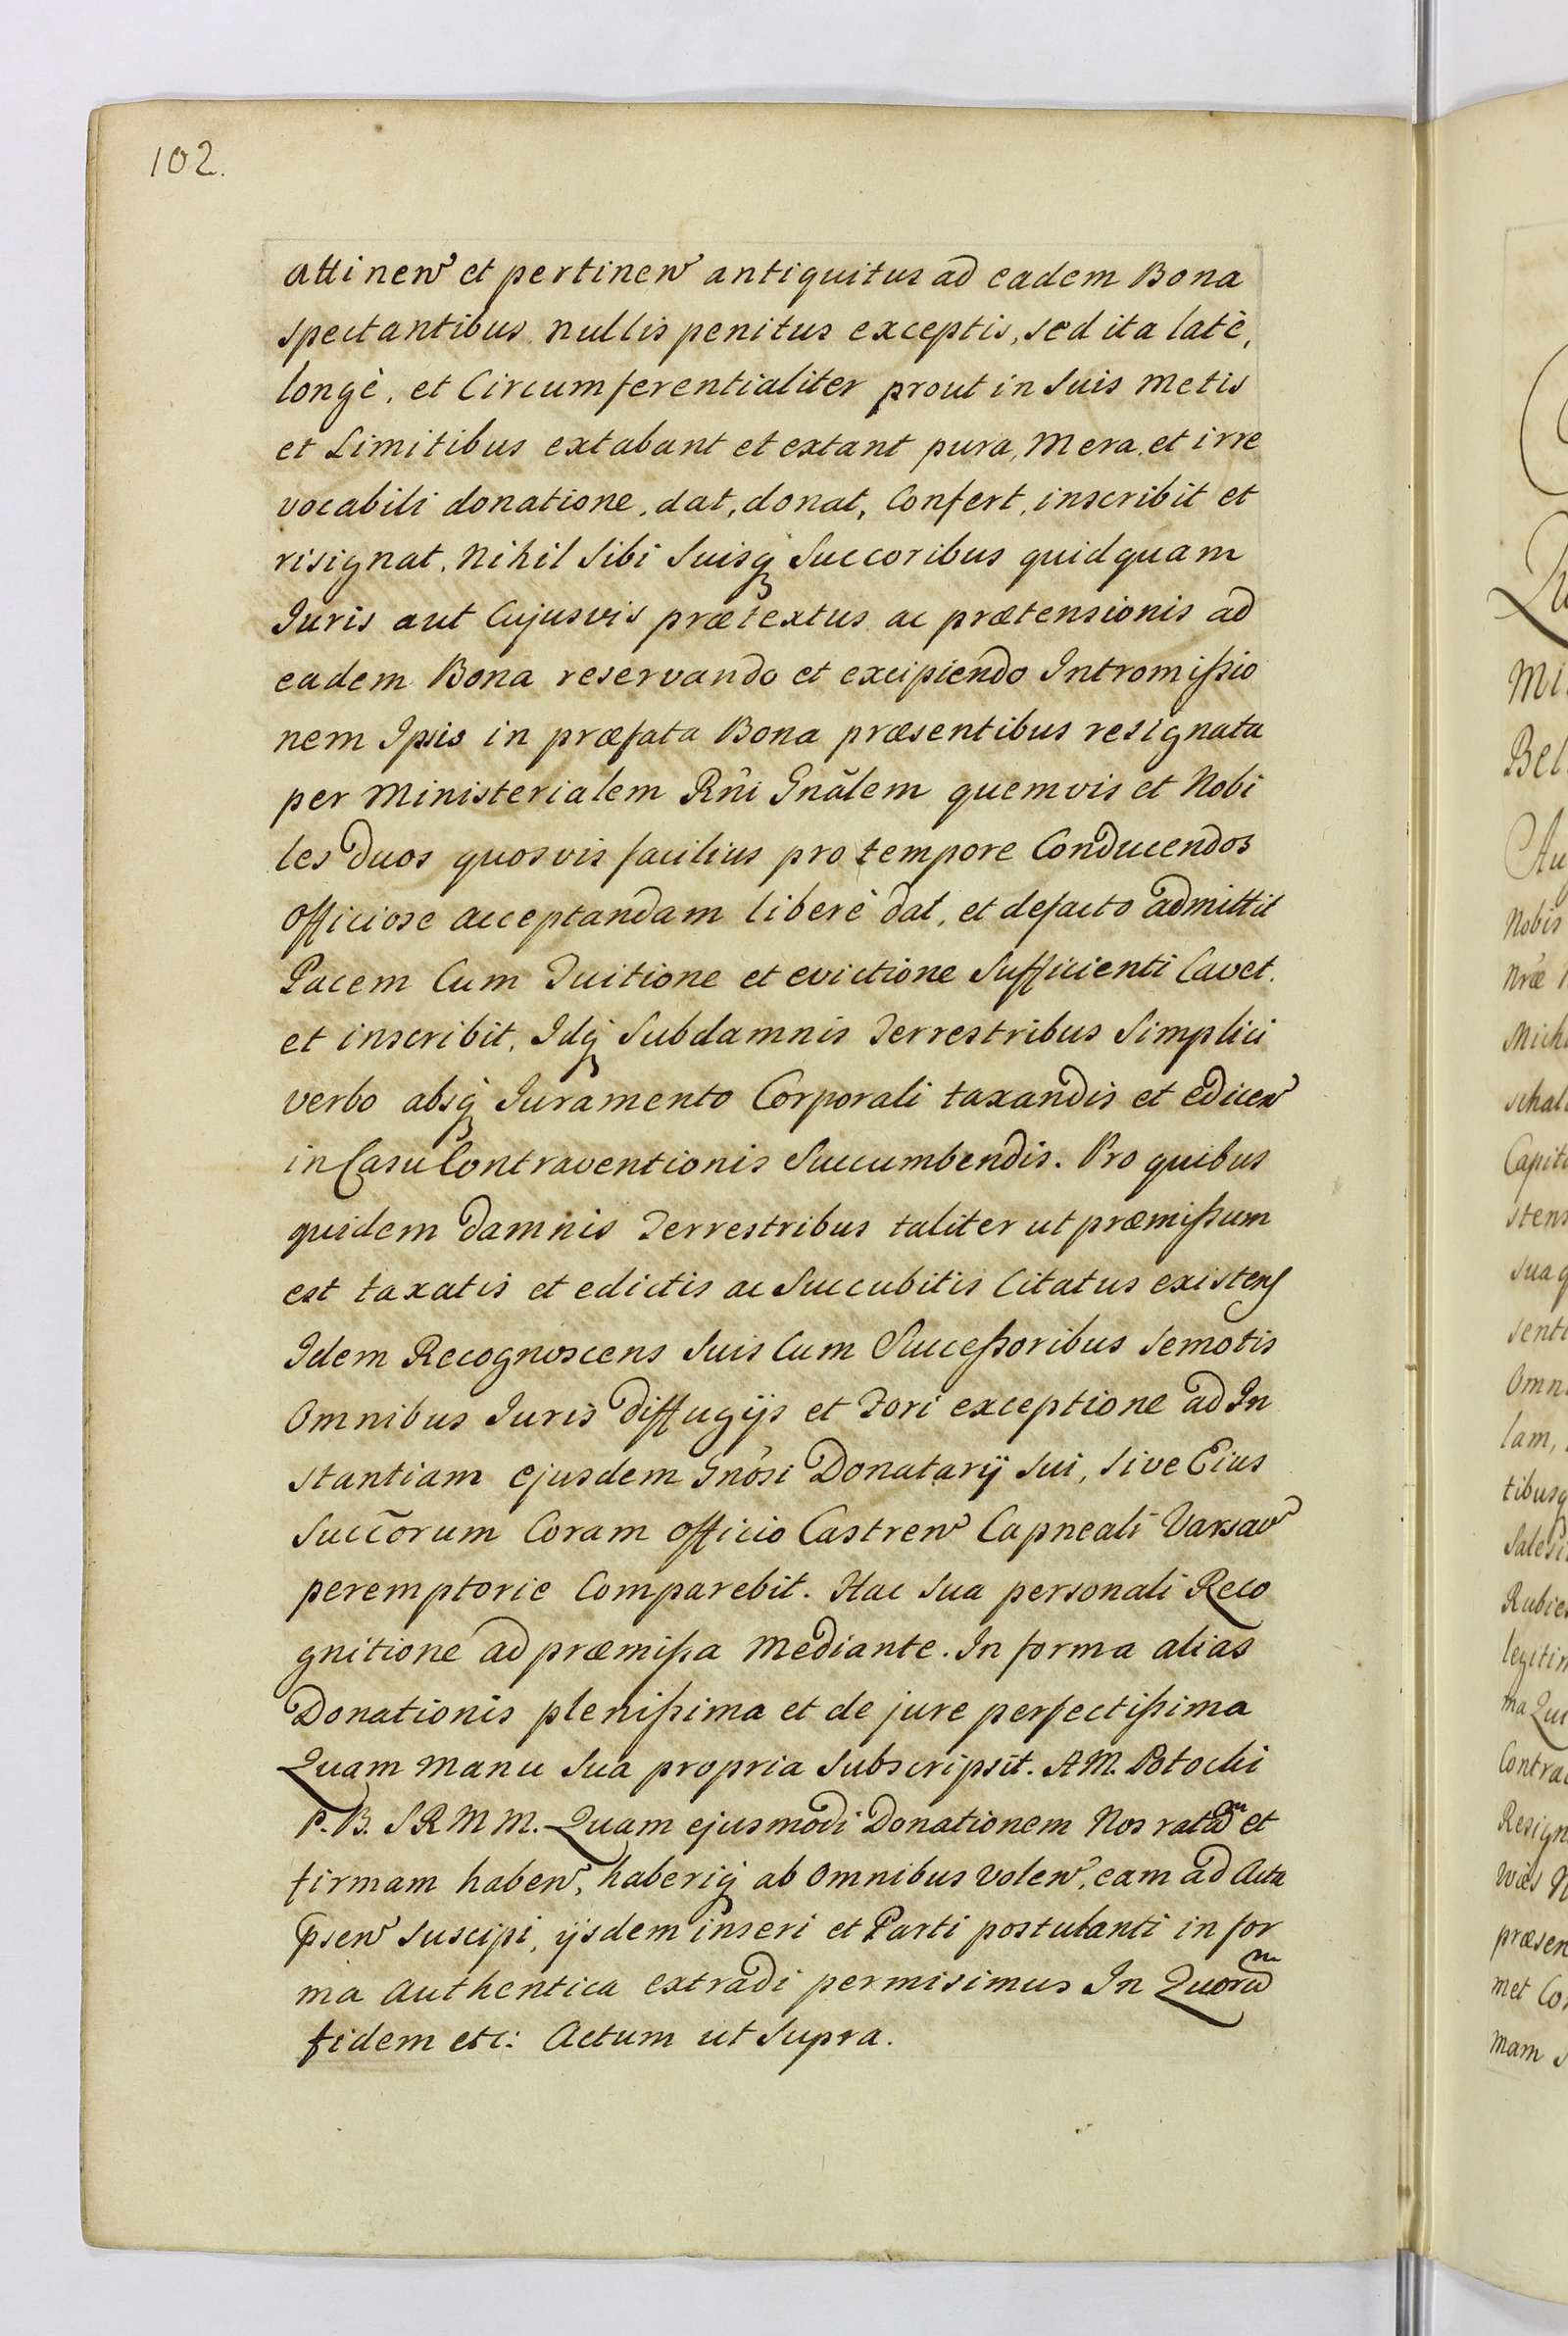 102.
attinen et pertinen antiquitus ad eadem Bona
spectantibus nullis penitus exceptis, sed ita latè,
longè, et Circumferentialiter prout in Suis metis
et Limitibus extabant et extant pura, mera, et irre
vocabili donatione, dat, donat, Confert, inscribit et
risignat, nihil Sibi Suisq Succoribus quidquam
Iuris aut Cujusvis prætextus ac prætensionis ad
eadem Bona reservando et excipiendo Intromißio
nem Ipsis in præfata Bona præsentibus resignata
per Ministerialem Rñi Gnãlem quemvis et Nobi
les Duos quosvis facilius pro tempore Conducendos
officiose acceptandam liberè dat, et defacto admittit
Pacem Cum Tuitione et evictione Sufficienti Cavet.
et inscribit, Idq Subdamnis Terrestribus Simplici
verbo absq Iuramento Corporali taxandis et edicen
in Casu Contraventionis Succumbendis. Pro quibus
quidem Damnis Terrestribus taliter ut præmißum
est taxatis et edictis ac Succubitis Citatus existens
Idem Recognoscens Suis Cum Succeßoribus Semotis
Omnibus Iuris Diffugijs et Fori exceptione ad In
stantiam ejusdem Gnôsi Donatarij Sui, Sive Eius
Succõrum Coram officio Castren Capneali Varsav
peremptorie Comparebit. Hac Sua personali Reco
gnitione ad præmißa mediante. In forma alias
Donationis plenißima et de jure perfectißima
Quam manu Sua propria Subscripsit. A M. Potocki
P. B. S R M M. Quam ejusmodi Donationem Nos ratam et
firmam haben, haberiq ab omnibus volen, eam ad Acta
psen Suscipi, ijsdem inseri et Parti postulanti in for
ma authentica extradi permisimus In Quorum
fidem etc: Actum ut Supra.